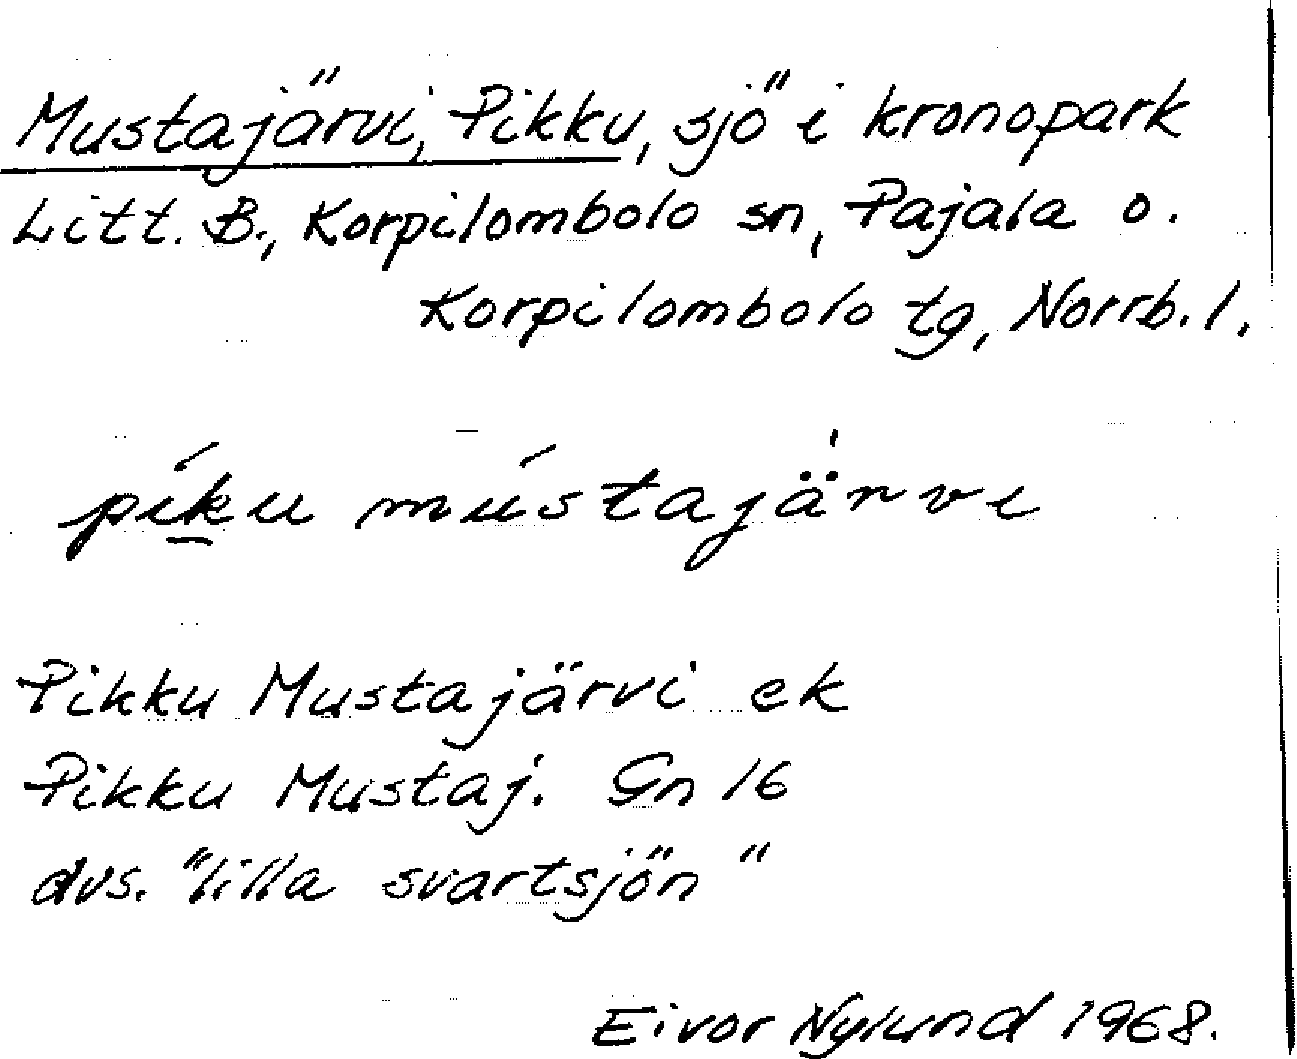 Mustajärvi, Pikku, sjö i kronopark
Litt. B., Korpilombolo sn, Pajala o.
Korpilombolo tg, Norrb. l.
píḵu mústajä̀rvi
Pikku Mustajärvi ek
Pikku Mustaj. Gn 16
dvs. "lilla svartsjön"
Eivor Nylund 1968.